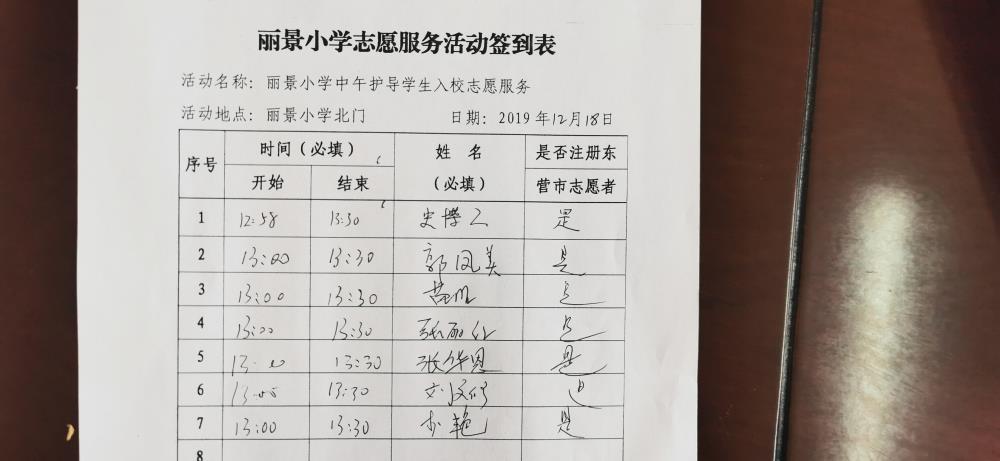 丽景小学志愿服务活动签到表
活动名称：丽景小学中午护导学生入校志愿服务
活动地点：丽景小学北门 日期：2019年12月18日
序号 时间（必填） 姓名（必填） 是否注册东营市志愿者
开始 结束
1 12:58 13:30 史 是
2 13:00 13:30 郭凤美 是
3 13:00 13:30 苗 是
4 13:00 13:30 张 是
5 13:00 13:30 张华恩 是
6 13:00 13:30 是
7 13:00 13:30 艳 是
8